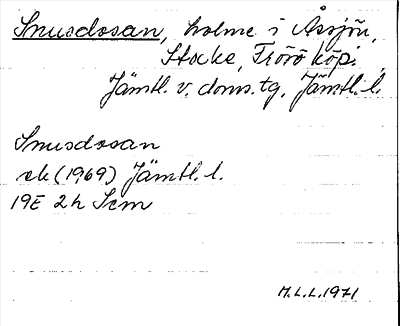 Snusdosan, holme i Åssjön,
Stocke, Frösö köp.
Jämtl. v. doms. tg, Jämtl. l.
Snusdosan
ek (1969) Jämtl. l.
19E 2h Scm
M.L.L. 1971